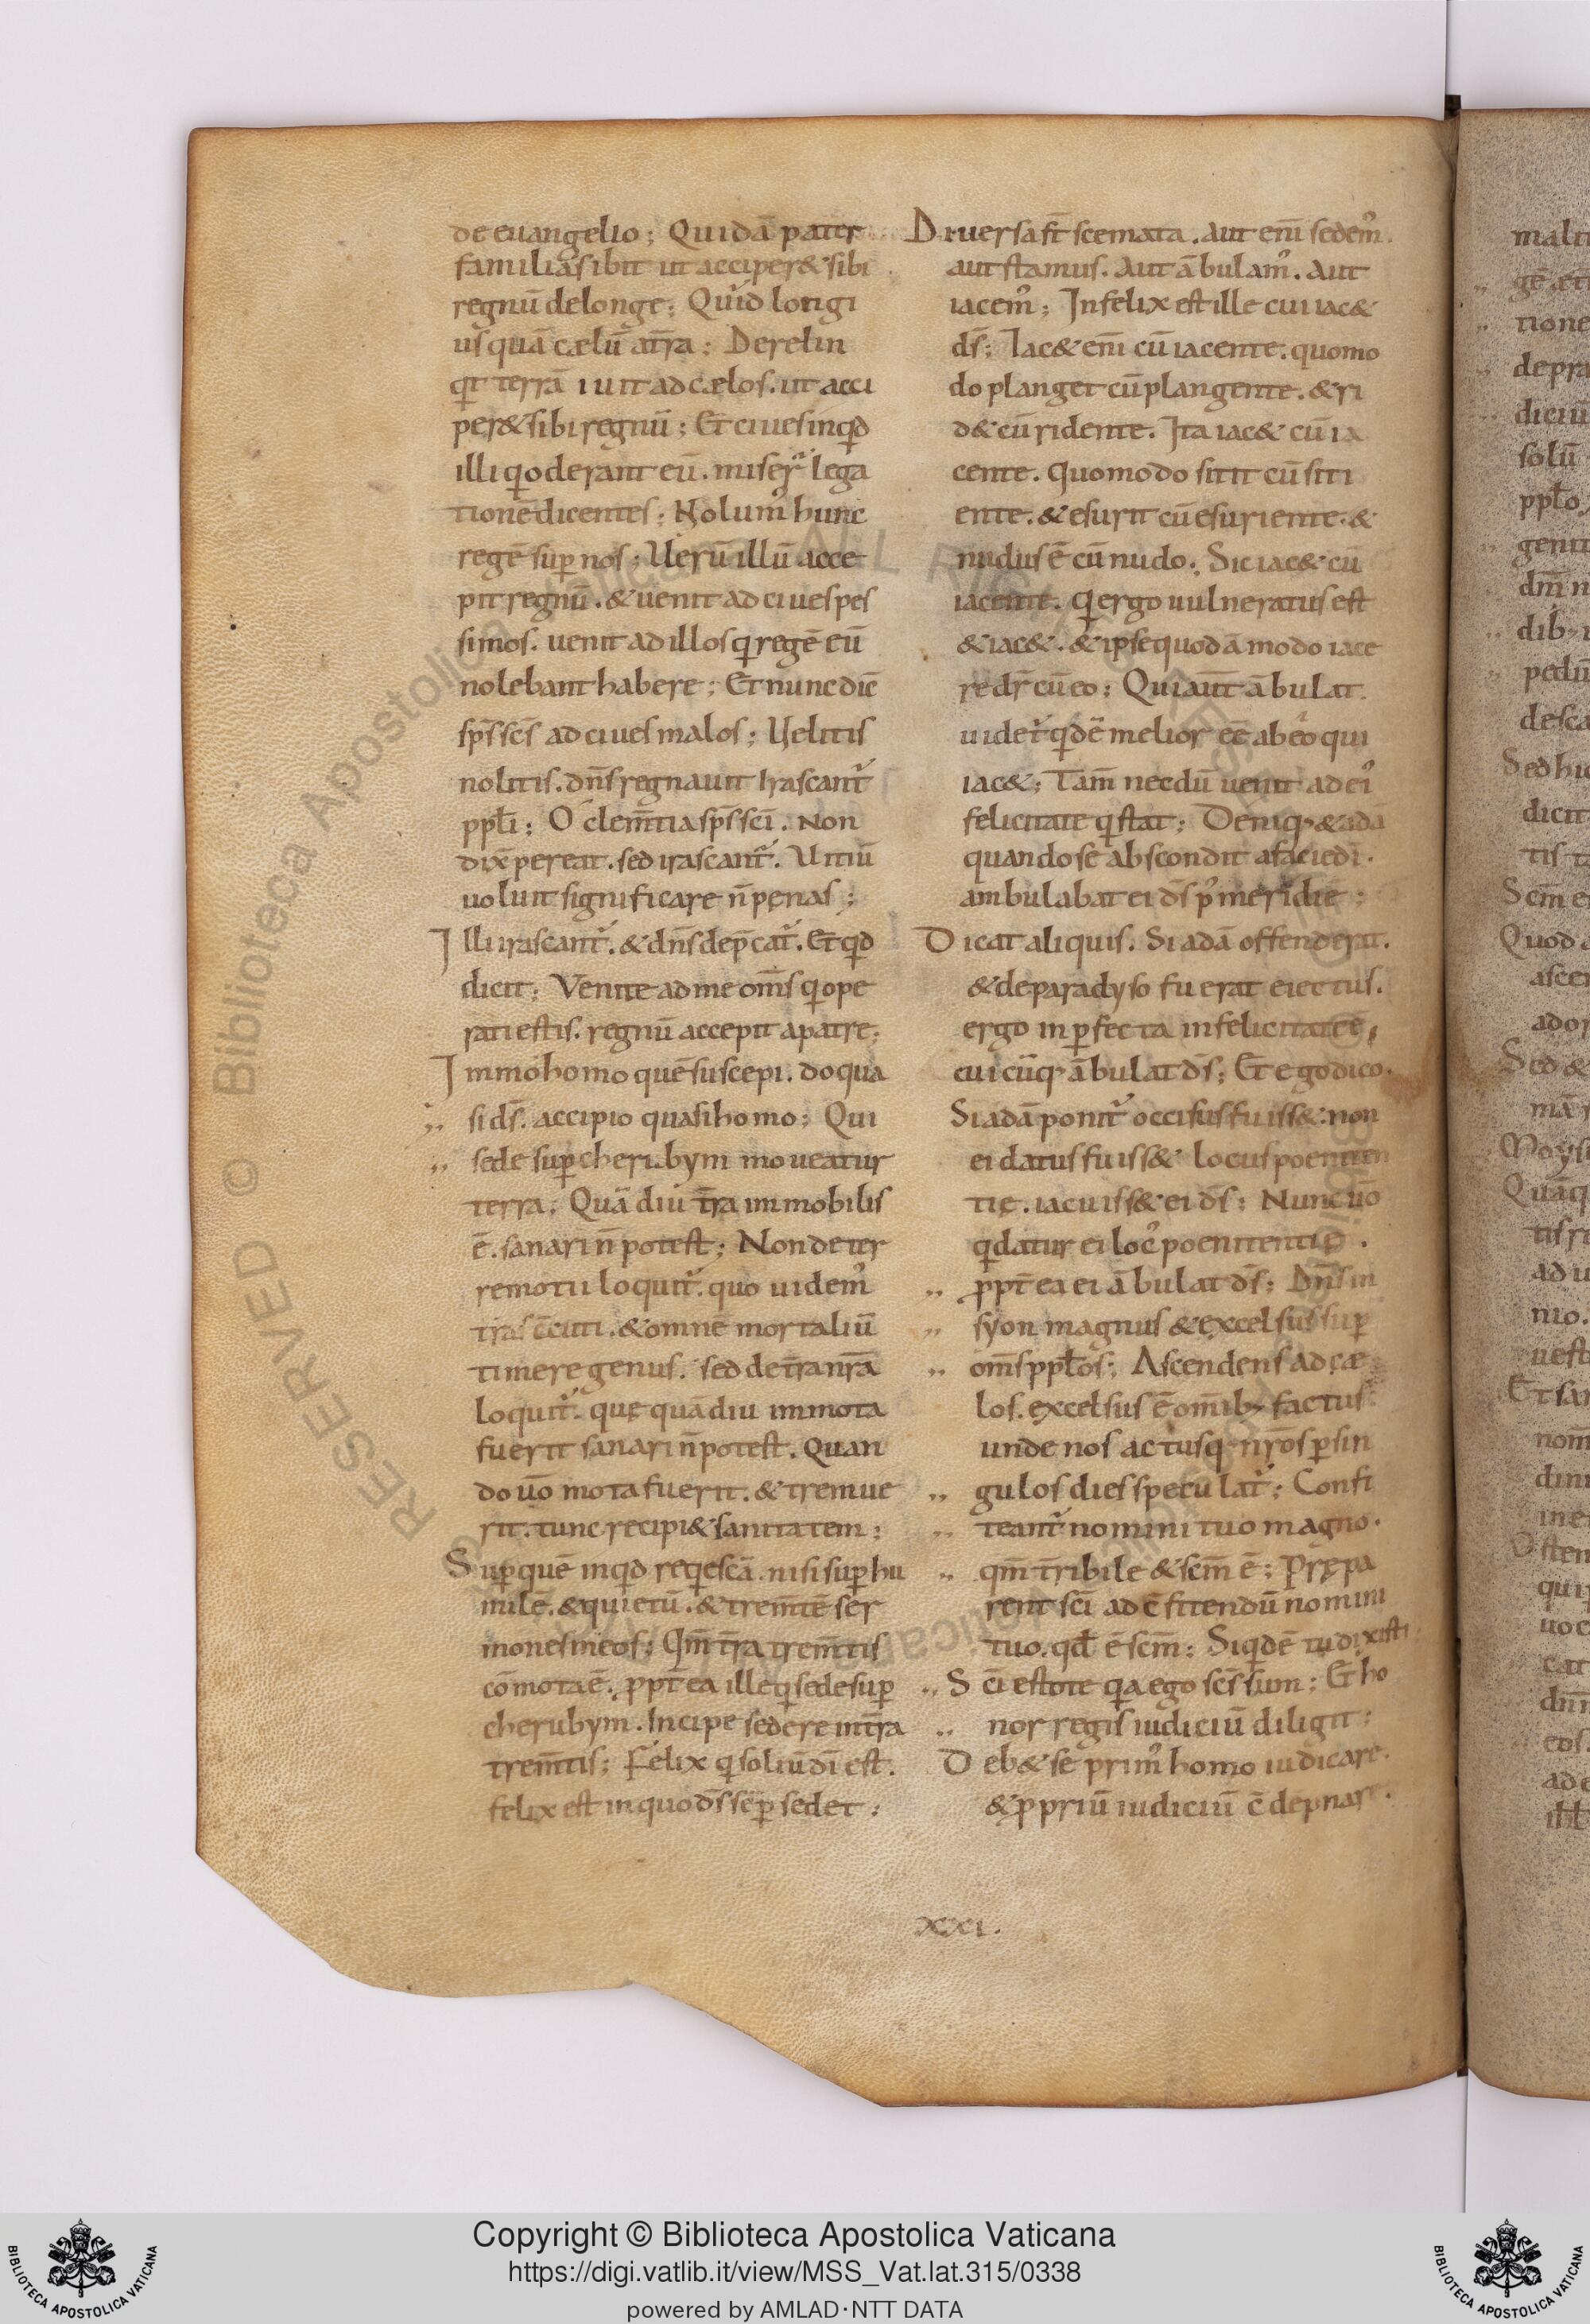 de euangelio; Quidā pater
familias ibit ut acciper& sibi
regnū de longe; Quid longi
us quā cælū a tr̄a; Derelin
qt terrā iuit ad cælos. ut acci
per& sibi regnū; Et ciues inqd
illi qi oderant eū. miser lega
tionē dicentes; Nolum hunc
regē sup nos; Uerū illū acce
pit regnū. & uenit ad ciues pes
simos. uenit ad illos q regē eū
nolebant habere; Et nunc dic̄
sp̄s sc̄s ad ciues malos; Uelitis
nolitis. dn̄s regnauit Irascant
ppl̄i; O clem̄tia sp̄s sc̄i. Non
dix̄ pereat. sed irascant. Uitiū
uoluit significare n̄ penas;
Illi irascant. & dn̄s dep̄cat. Et qd
dicit; Venite ad me om̄s q ope
rati estis. regnū accepit a patre;
Immo homo quē suscepi. do qua
si ds̄. accipio quasi homo; Qui
sede sup cherubym moueatur
terra; Quā diu tr̄a immobilis
ē. sanari n̄ potest; Non de ter
re motu loquit. quo uidem
tras c̄cuti. & omnē mortaliū
timere genus. sed de tr̄a nr̄a
loquit. quę quā diu immota
fuerit sanari n̄ potest. Quan
do uō mota fuerit. & tremue
rit. tunc recipi& sanitatem;
Sup quē inqd reqescā. nisi sup hu
milē. & quietū. & trem̄tē ser
mones meos; Qm̄ tr̄a trem̄tis
cōmota ē. ppt̄ ea ille q sede sup
cherubym. Incipe sedere in tr̄a
trem̄tis; Felix q soliū dī est.
felix est in quo ds̄ sēp sedet;
Diuersa st̄ scemata. Aut enī sedem.
aut stamus. Aut ābulam. Aut
iacem; Infelix est ille cui iac&
ds̄; Iac& enī cū iacente. quomo
do planget cū plangente. & ri
d& cū ridente. Ita iac& cū ia
cente. Quomodo sitit cū siti
ente. & esurit cū esuriente. &
nudus ē cū nudo; Sic iac& cū
iacente. Q ergo uulneratus est
& iac&. & ipse quodā modo iace
re dr̄ cū eo; Qui aut̄ ābulat.
uidet qdē melior eē ab eo qui
iac&; Tam̄ necdū uenit ad ei
felicitate q stat; Deniq & adā
quando se abscondit a facie dī.
ambulabat ei ds̄ p meridie;
Dicat aliquis. Si adā offenderat.
& de paradyso fuerat eiectus.
ergo inpfecta infelicitate ē,
cuicūq ābulat ds̄; Et ego dico.
Si adā ponit occisus fuiss&. non
ei datus fuiss& locus poeniten
tię. iacuiss& ei ds̄; Nunc uō
q datur ei loc poenitentię.
ppt̄ ea ei ābulat ds̄; Dn̄s in
syon magnus & excelsus sup
om̄s ppl̄os; Ascendens ad cæ
los. excelsus ē om̄ib; factus
unde nos actusq nr̄os p sin
gulos dies speculat; Confi
teant nomini tuo magno.
qm̄ tr̄ribile & scm̄ ē; Prępa
rent sc̄i ad c̄fitendū nomini
tuo. qd̄ ē scm̄; Siqdē tu dixisti
Sc̄i estote qa ego sc̄s sum; Et ho
nor regis iudiciū diligit;
Deb& se prim homo iudicare.
& ppriū iudiciū c̄depnare.
xxi.
Copyright © Biblioteca Apostolica Vaticana
https://digi.vatlib.it/view/MSS_Vat.lat.315/0338
powered by AMLAD·NTT DATA
BIBLIOTECA APOSTOLICA VATICANA
BIBLIOTECA APOSTOLICA VATICANA